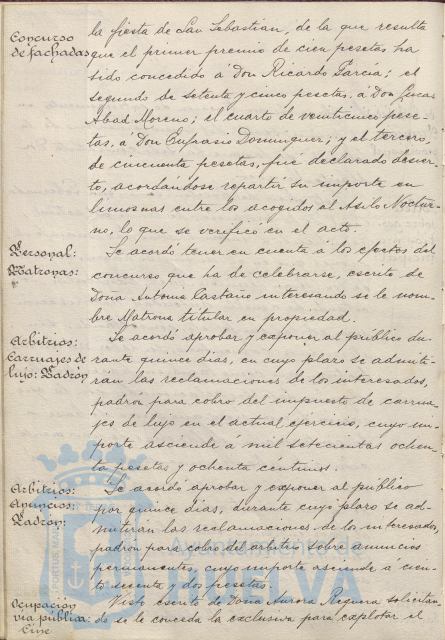 Concurso
de fachadas
la fiesta de San Sebastian, de la que resulta
que el primer premio de cien pesetas ha
sido concedido á Don Ricardo García; el
segundo de setenta y cinco pesetas, á Don Lucas
Abad Moreno; el cuarto de veinticinco pese-
tas, á Don Eufrasio Dominguez; y el tercero,
de cincuenta pesetas, fué declarado desier-
to, acordándose repartir su importe en
limosnas entre los acogidos al Asilo Noctur-
no, lo que se verificó en el acto.
Personal:
Matronas:
Se acordó tener en cuenta á los efectos del
concurso que ha de celebrarse, escrito de
Doña Antonia Castaño interesando se le nom-
bre Matrona titular en propiedad.
Arbitrios:
Carruajes de
lujo: Padrón
Se acordó aprobar y exponer al público du-
rante quince dias, en cuyo plazo se admiti-
rán las reclamaciones de los interesados,
padrón para cobro del impuesto de carrua-
jes de lujo en el actual ejercicio, cuyo im-
porte asciende á mil setecientas ochen-
ta pesetas y ochenta centimos.
Arbitrios:
Anuncios:
Padrón:
Se acordó aprobar y exponer al público
por quince dias, durante cuyo plazo se ad-
mitirán las reclamaciones de los interesados,
padrón para cobro del arbitrio sobre anuncios
permanentes, cuyo importe asciende a cien-
to y dos pesetas.
Ocupación
via pública:
Cine
Visto escrito de Doña Aurora Reguera solicitan-
do se le conceda la exclusiva para explotar el
Ayuntamiento de
HUELVA